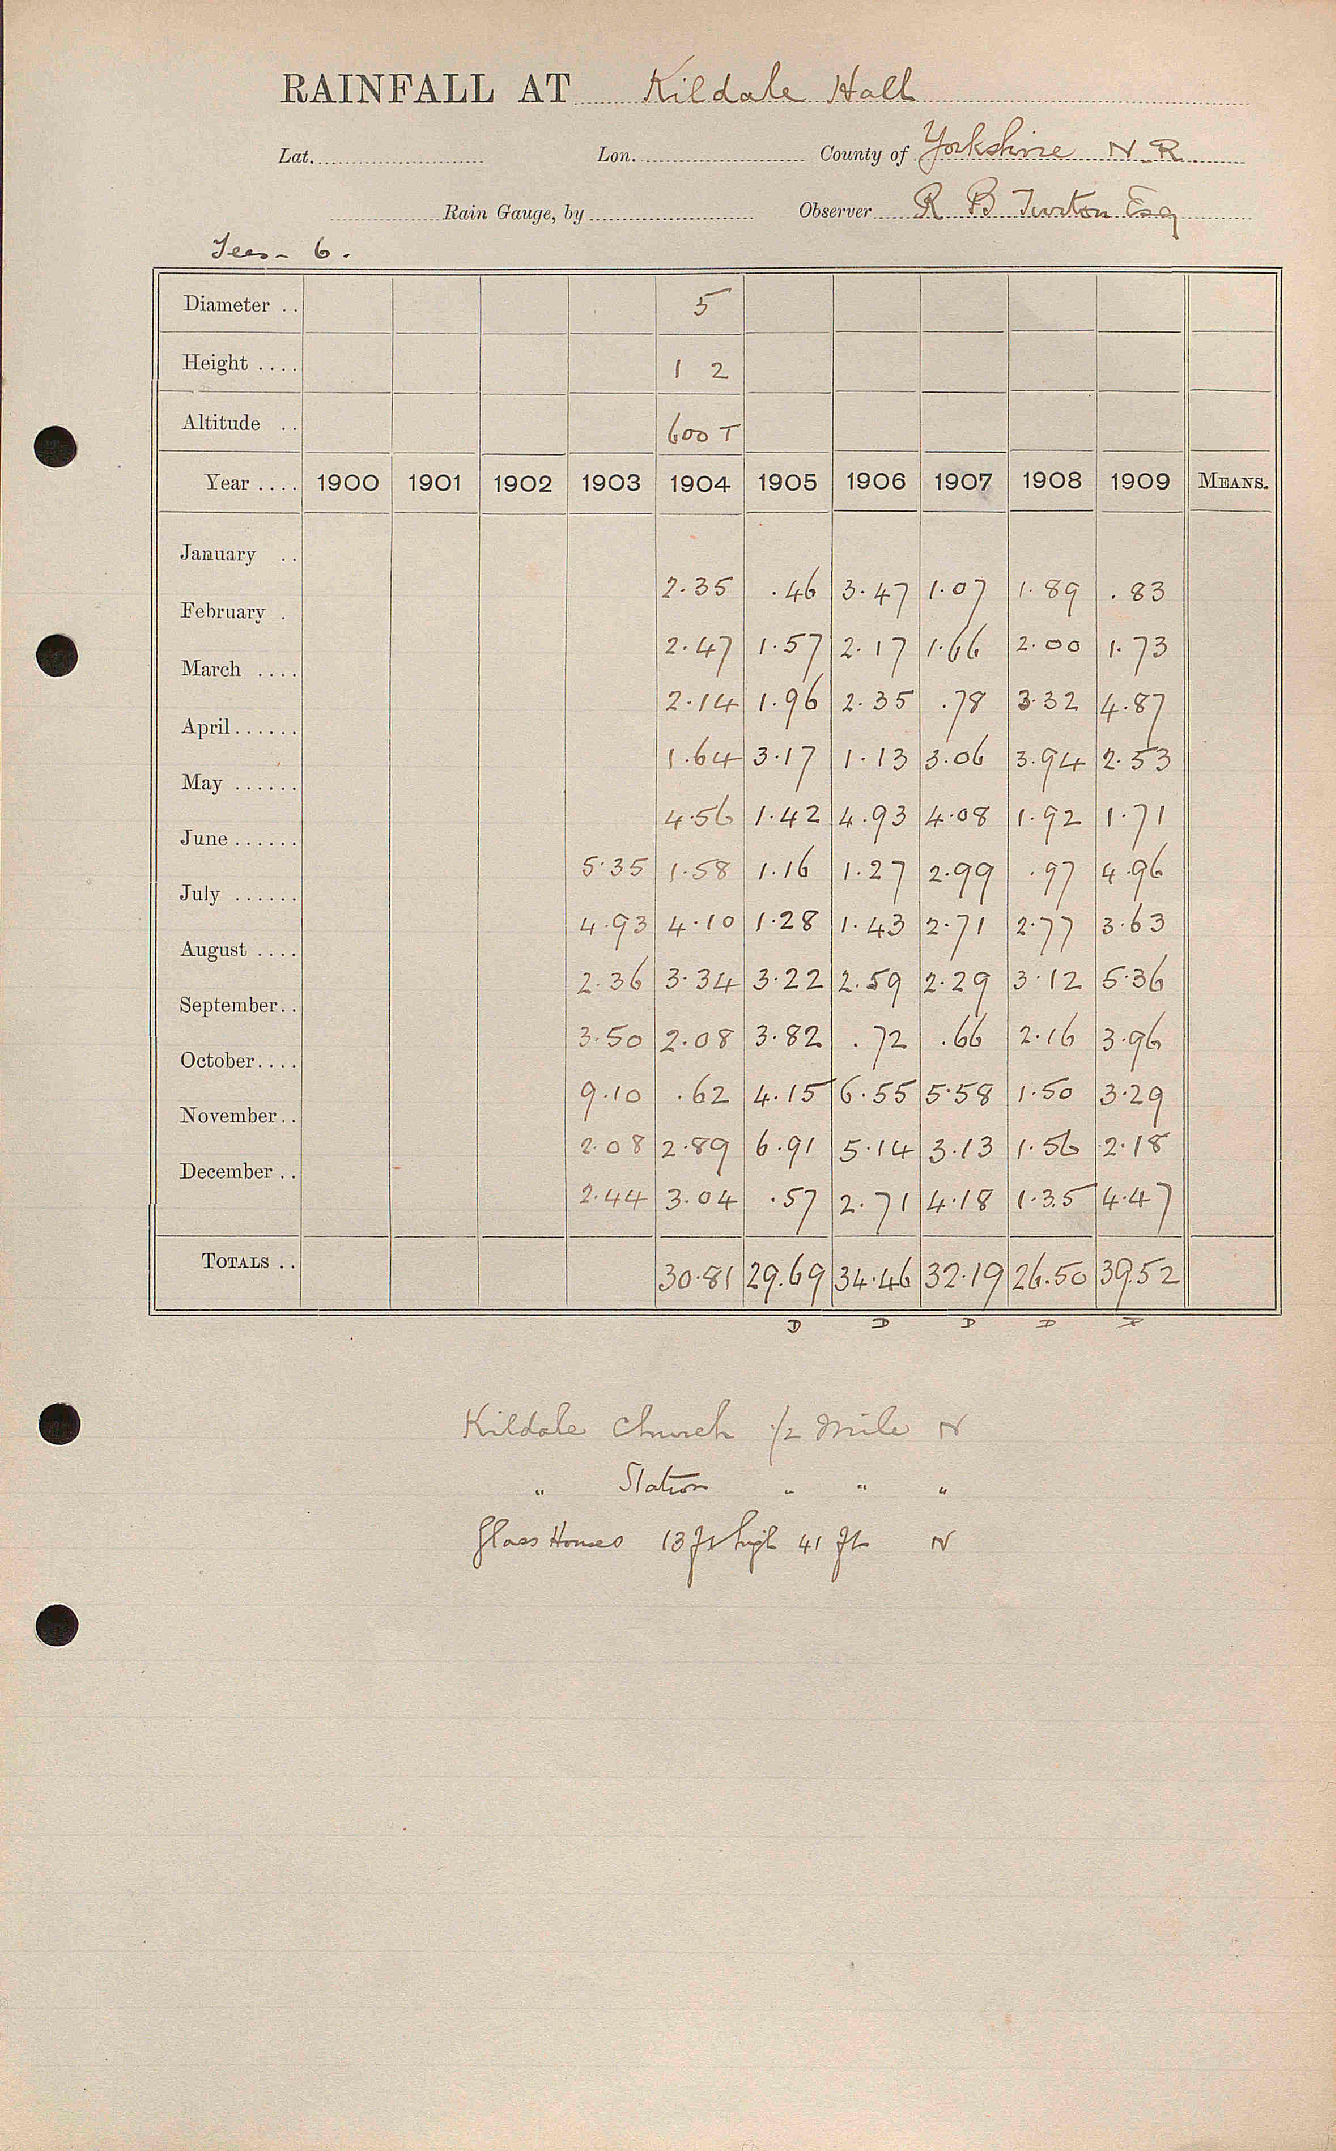 RAINFALL AT Kildale Hall
Lat. Lon. County of Yorkshire N.R.
Rain Gauge, by Observer R B Turton Esq
Tees - 6.
Diameter .. 5
Height .... 1 2
Altitude .. 600 T
Year .... 1900 1901 1902 1903 1904 1905 1906 1907 1908 1909 MEANS.
January ..
2.35 .46 3.47 1.07 1.89 .83
February .
2.47 1.57 2.17 1.66 2.00 1.73
March ....
2.14 1.96 2.35 .78 3.32 4.87
April......
1.64 3.17 1.13 3.06 3.94 2.53
May ......
4.56 1.42 4.93 4.08 1.92 1.71
June......
5.35 1.58 1.16 1.27 2.99 .97 4.96
July ......
4.93 4.10 1.28 1.43 2.71 2.77 3.63
August ....
2.36 3.34 3.22 2.59 2.29 3.12 5.36
September..
3.50 2.08 3.82 .72 .66 2.16 3.96
October....
9.10 .62 4.15 6.55 5.58 1.50 3.29
November..
2.08 2.89 6.91 5.14 3.13 1.56 2.18
December ..
2.44 3.04 .57 2.71 4.18 1.35 4.47
TOTALS .. 30.81 29.69 34.46 32.19 26.50 39.52
D D D D D
Kildale Church 1/2 Mile N
" Station " " "
Glass Houses 13 ft high 41 ft N